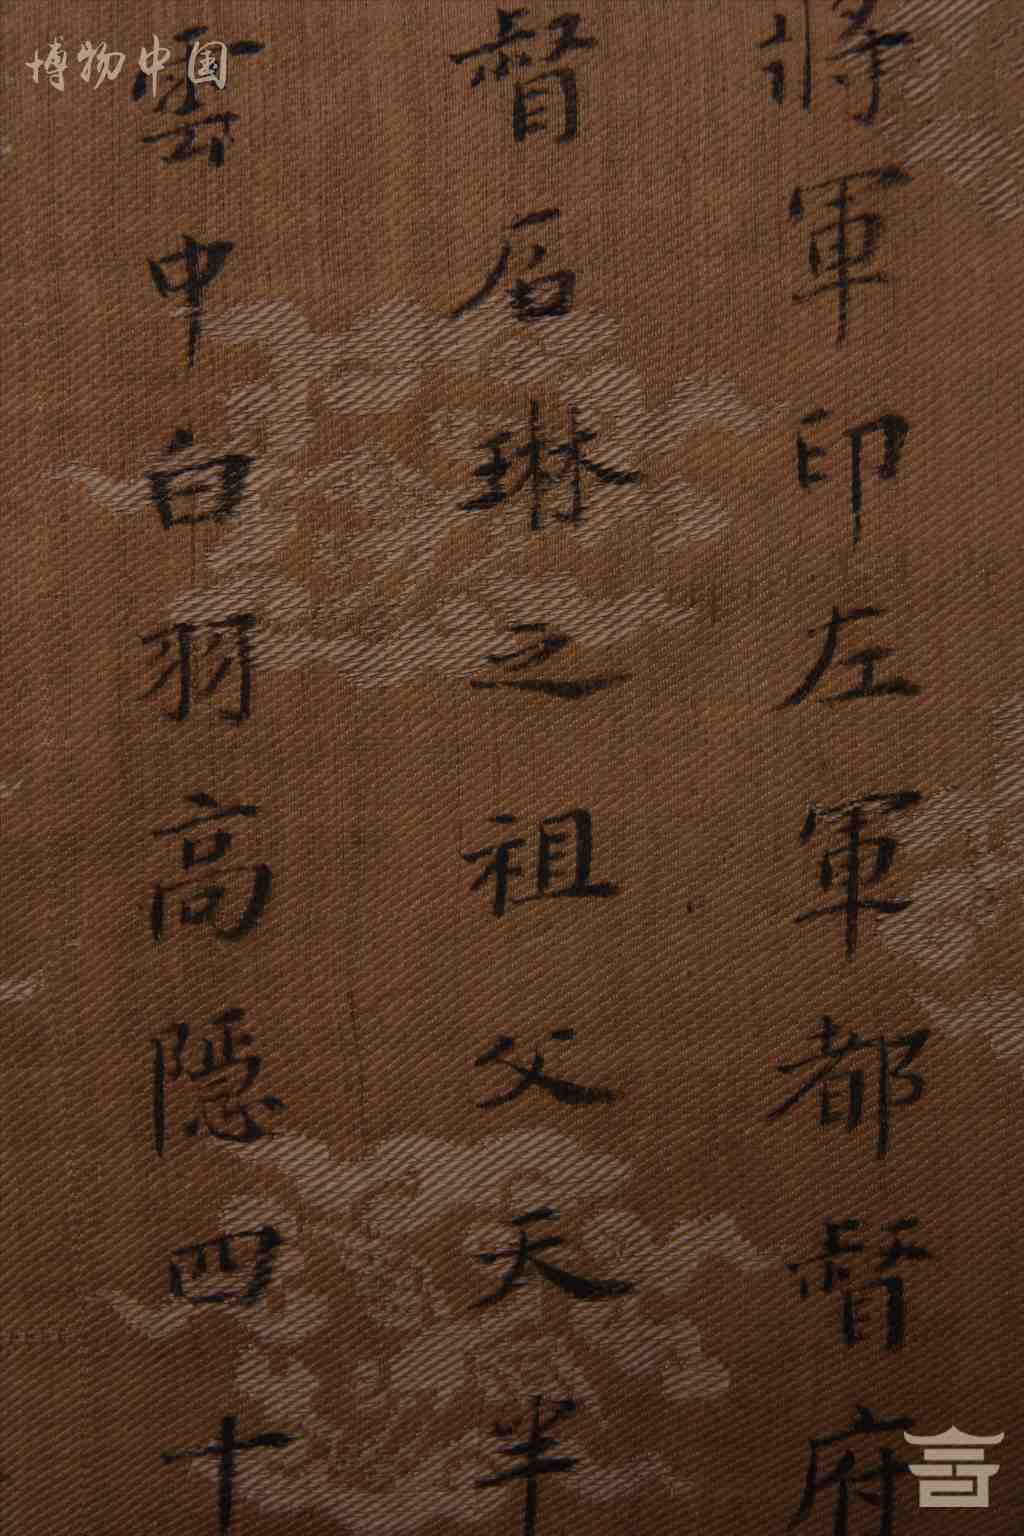 将軍印左軍都督府
督后琳之祖父天半
雲中白羽高隠四十
博物中国